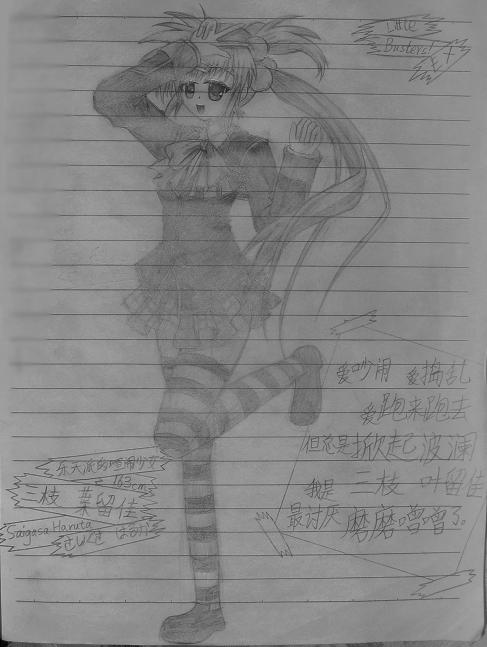 Little
Busters!
爱吵闹 爱捣乱
爱跑来跑去
但总是掀起波澜
我是 三枝 叶留佳
最讨厌 磨磨噌噌了。
乐天派的喧闹少女
163cm
三枝 葉留佳
Saigasa Haruta
さいぐさ はるか